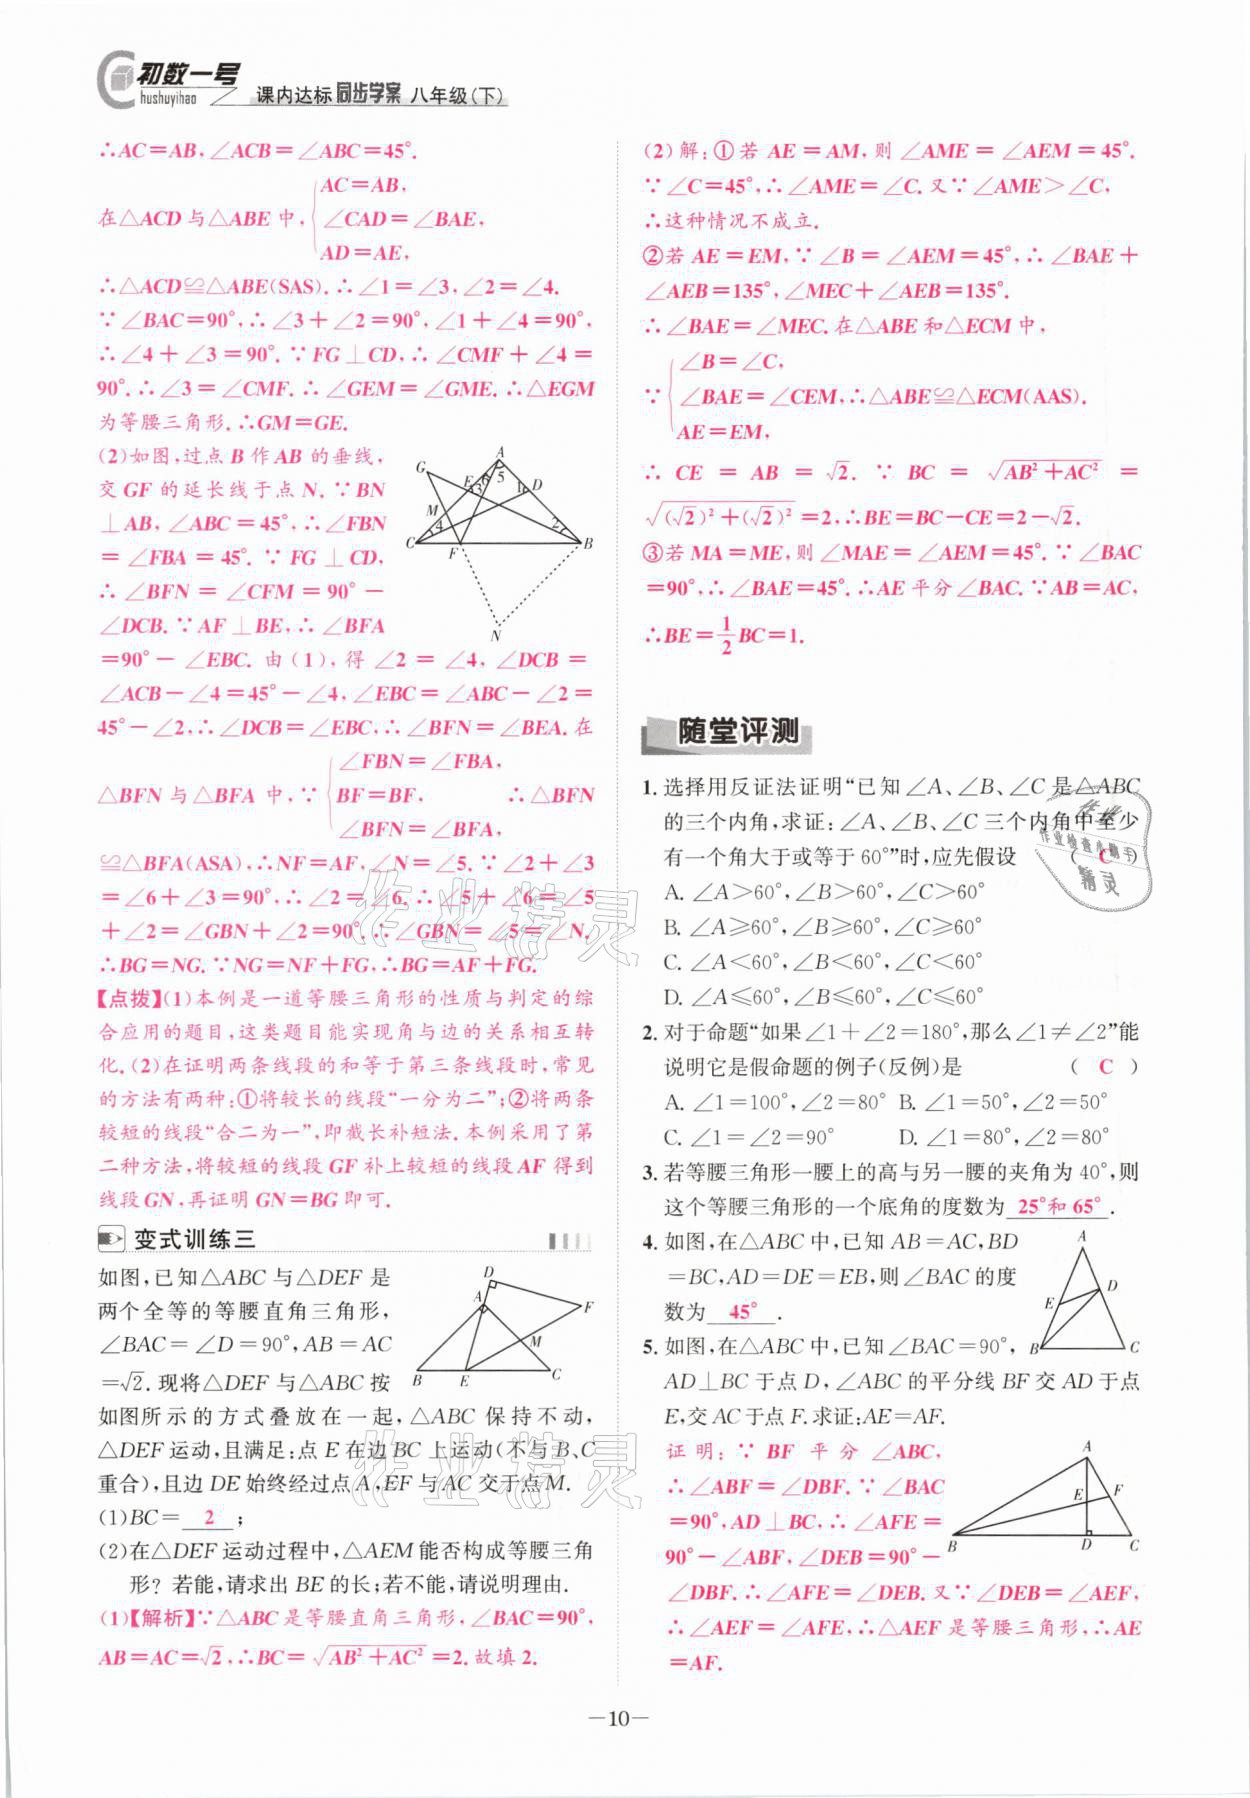 初数一号
hushuyihao
课内达标 同步学案 八年级(下)
∴AC=AB,∠ACB=∠ABC=45°.
AC=AB,
在△ACD与△ABE中,{∠CAD=∠BAE,
AD=AE,
∴△ACD≌△ABE(SAS).∴∠1=∠3,∠2=∠4.
∵∠BAC=90°,∴∠3+∠2=90°,∠1+∠4=90°,
∴∠4+∠3=90°.∵FG⊥CD,∴∠CMF+∠4=
90°.∴∠3=∠CMF.∴∠GEM=∠GME.∴△EGM
为等腰三角形.∴GM=GE.
(2)如图,过点B作AB的垂线,
交GF的延长线于点N.∵BN
⊥AB,∠ABC=45°,∴∠FBN
=∠FBA=45°.∵FG⊥CD,
∴∠BFN=∠CFM=90°-
∠DCB.∵AF⊥BE,∴∠BFA
=90°-∠EBC.由(1),得∠2=∠4,∠DCB=
∠ACB-∠4=45°-∠4,∠EBC=∠ABC-∠2=
45°-∠2,∴∠DCB=∠EBC,∴∠BFN=∠BEA.在
∠FBN=∠FBA,
△BFN与△BFA中,∵{BF=BF, ∴△BFN
∠BFN=∠BFA,
≌△BFA(ASA),∴NF=AF,∠N=∠5.∵∠2+∠3
=∠6+∠3=90°,∴∠2=∠6.∴∠5+∠2=∠6+∠5
+∠2=∠GBN+∠2=90°.∴∠GBN=∠5=∠N,
∴BG=NG.∵NG=NF+FG,∴BG=AF+FG.
【点拨】(1)本例是一道等腰三角形的性质与判定的综
合应用的题目,这类题目能实现角与边的关系相互转
化.(2)在证明两条线段的和等于第三条线段时,常见
的方法有两种:①将较长的线段“一分为二”;②将两条
较短的线段“合二为一”,即截长补短法.本例采用了第
二种方法,将较短的线段GF补上较短的线段AF得到
线段GN,再证明GN=BG即可.
变式训练三
如图,已知△ABC与△DEF是
两个全等的等腰直角三角形,
∠BAC=∠D=90°,AB=AC
=√2.现将△DEF与△ABC按
如图所示的方式叠放在一起,△ABC保持不动,
△DEF运动,且满足:点E在边BC上运动(不与B、C
重合),且边DE始终经过点A,EF与AC交于点M.
(1)BC= 2 ;
(2)在△DEF运动过程中,△AEM能否构成等腰三角
形?若能,请求出BE的长;若不能,请说明理由.
(1)【解析】∵△ABC是等腰直角三角形,∠BAC=90°,
AB=AC=√2,∴BC=√(AB²+AC²)=2.故填2.
(2)解:①若AE=AM,则∠AME=∠AEM=45°.
∵∠C=45°,∴∠AME=∠C.又∵∠AME>∠C,
∴这种情况不成立.
②若AE=EM,∵∠B=∠AEM=45°,∴∠BAE+
∠AEB=135°,∠MEC+∠AEB=135°.
∴∠BAE=∠MEC.在△ABE和△ECM中,
∠B=∠C,
∵{∠BAE=∠CEM,∴△ABE≌△ECM(AAS).
AE=EM,
∴CE=AB=√2.∵BC=√(AB²+AC²)=
√((√2)²+(√2)²)=2,∴BE=BC-CE=2-√2.
③若MA=ME,则∠MAE=∠AEM=45°.∵∠BAC
=90°,∴∠BAE=45°.∴AE平分∠BAC.∵AB=AC,
∴BE=1/2BC=1.
随堂评测
1. 选择用反证法证明“已知∠A、∠B、∠C是△ABC
的三个内角,求证:∠A、∠B、∠C三个内角中至少
有一个角大于或等于60°”时,应先假设 ( C )
A. ∠A>60°,∠B>60°,∠C>60°
B. ∠A≥60°,∠B≥60°,∠C≥60°
C. ∠A<60°,∠B<60°,∠C<60°
D. ∠A≤60°,∠B≤60°,∠C≤60°
2. 对于命题“如果∠1+∠2=180°,那么∠1≠∠2”能
说明它是假命题的例子(反例)是 ( C )
A. ∠1=100°,∠2=80° B. ∠1=50°,∠2=50°
C. ∠1=∠2=90° D. ∠1=80°,∠2=80°
3. 若等腰三角形一腰上的高与另一腰的夹角为40°,则
这个等腰三角形的一个底角的度数为 25°和65° .
4. 如图,在△ABC中,已知AB=AC,BD
=BC,AD=DE=EB,则∠BAC的度
数为 45° .
5. 如图,在△ABC中,已知∠BAC=90°,
AD⊥BC于点D,∠ABC的平分线BF交AD于点
E,交AC于点F.求证:AE=AF.
证明:∵BF平分∠ABC,
∴∠ABF=∠DBF.∵∠BAC
=90°,AD⊥BC,∴∠AFE=
90°-∠ABF,∠DEB=90°-
∠DBF.∴∠AFE=∠DEB.又∵∠DEB=∠AEF,
∴∠AEF=∠AFE,∴△AEF是等腰三角形,∴AE
=AF.
—10—